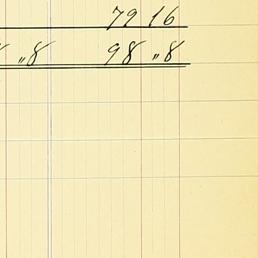 79 16
„8 98 „8